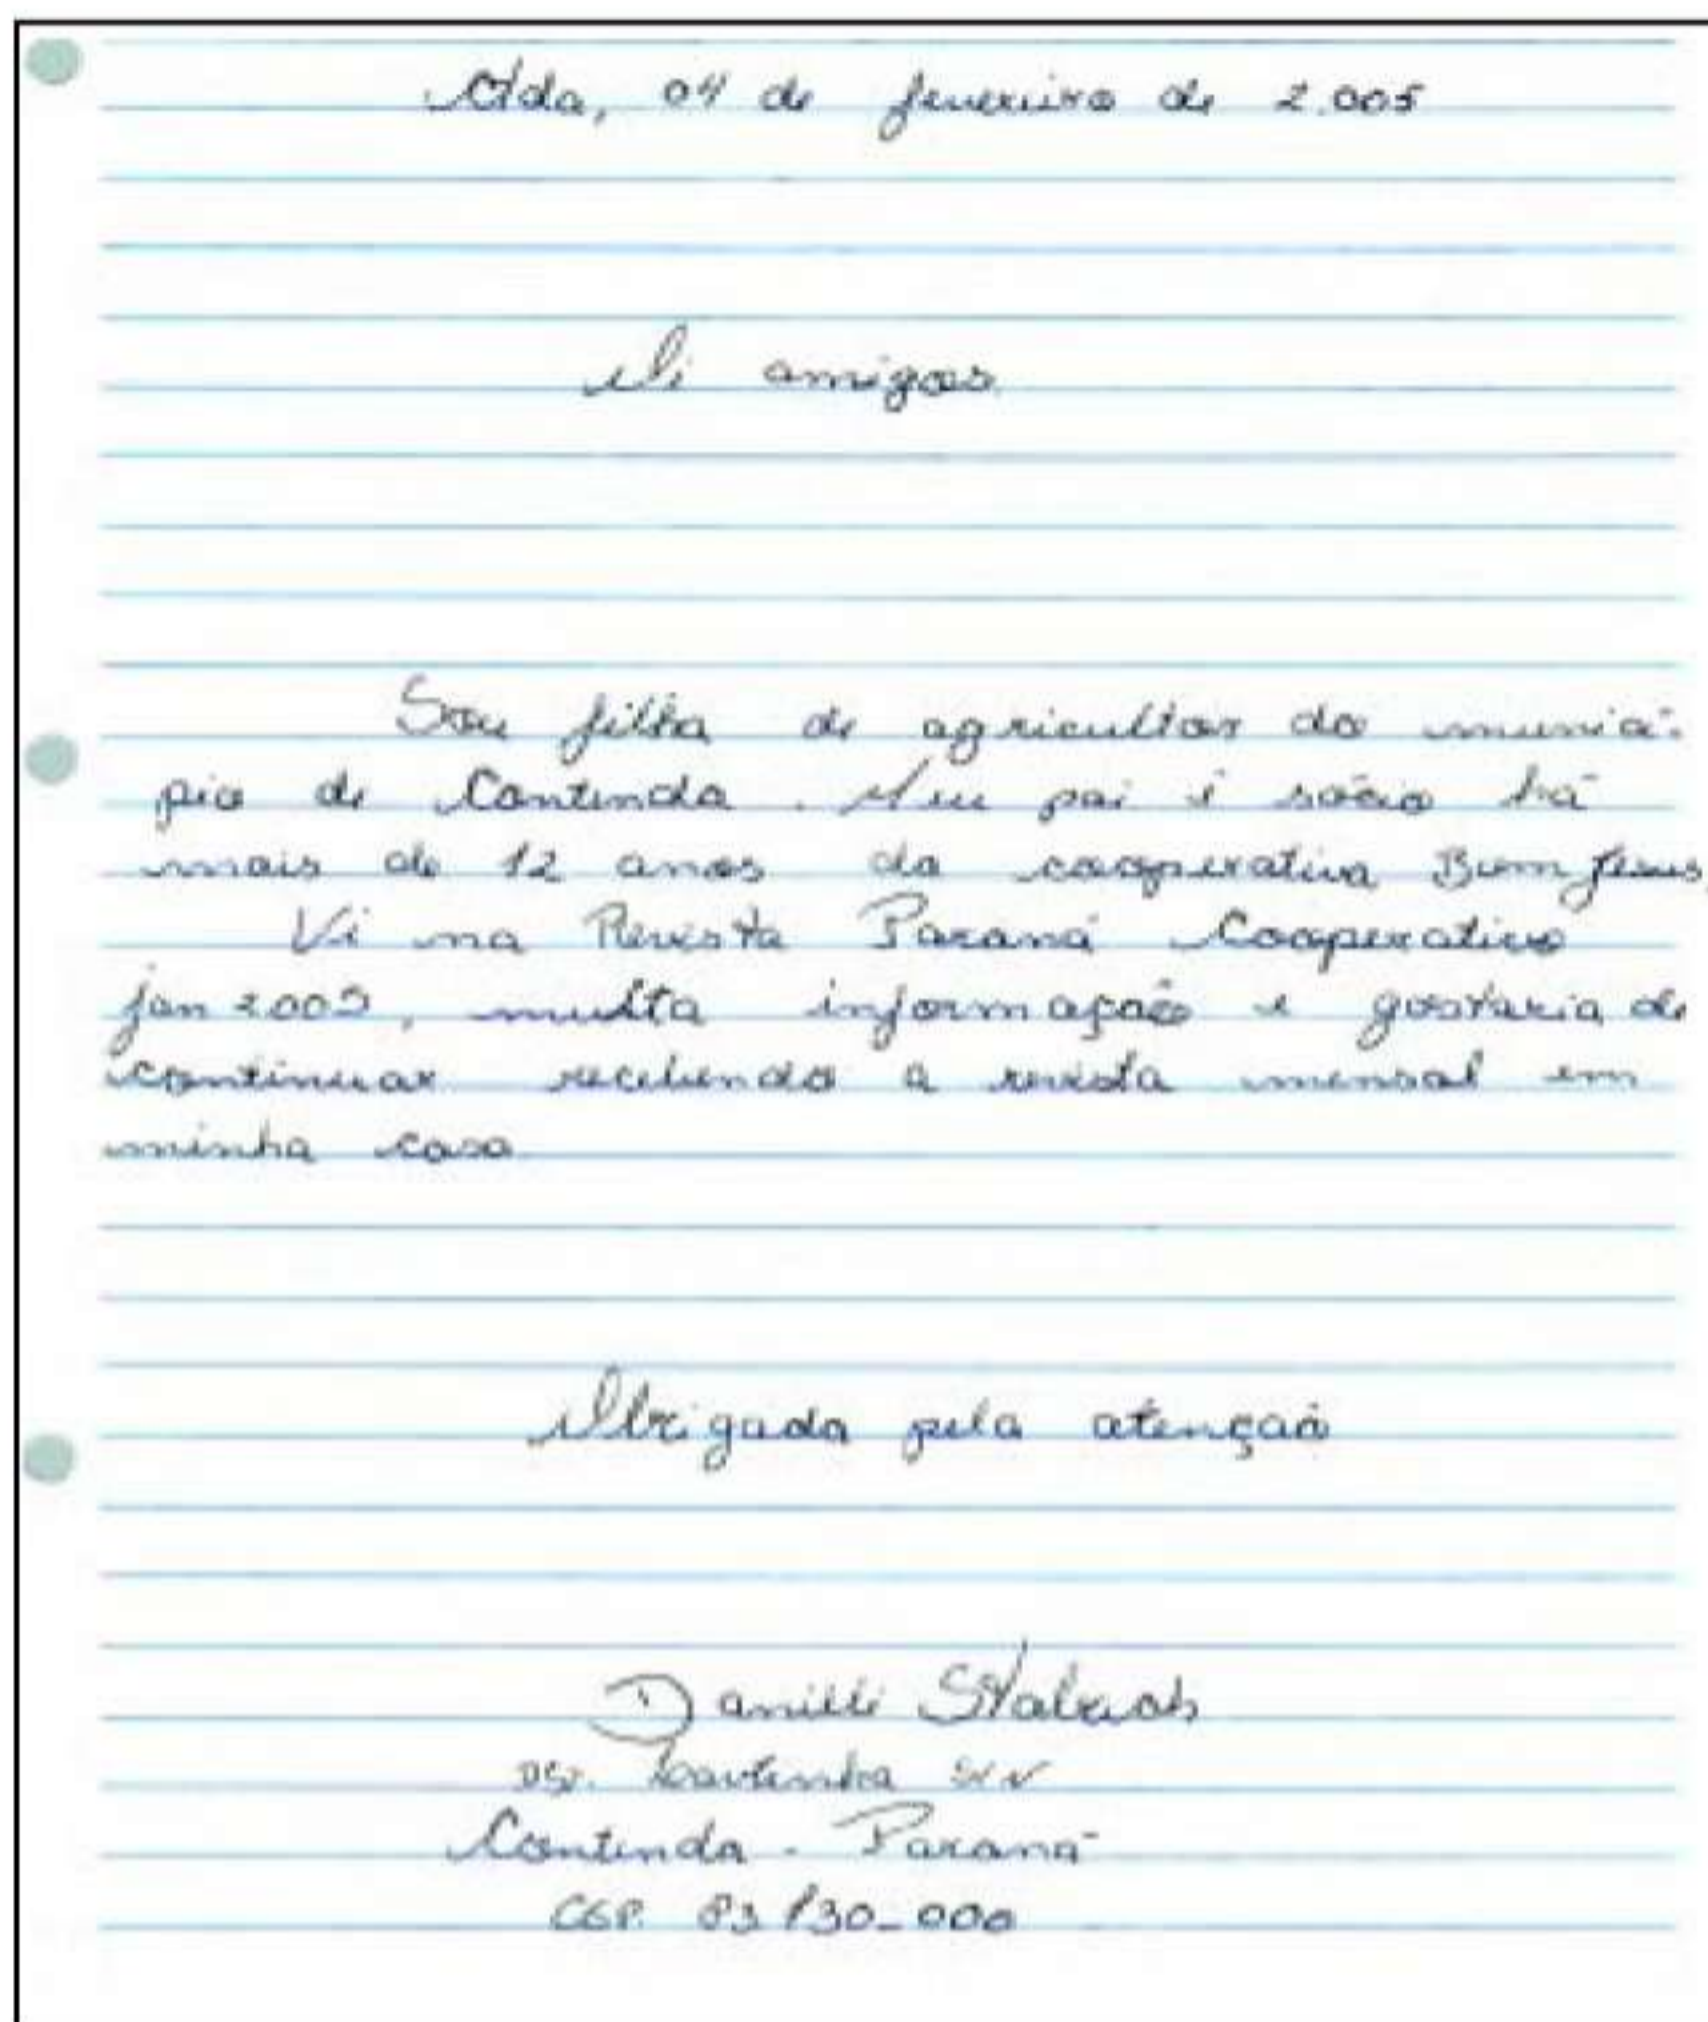 Ctda, 04 de fevereiro de 2.005
Oi amigos.
Sou filha de agricultor do municí-
pio de Contenda. Meu pai é sócio há
mais de 12 anos da cooperativa Bom Jesus.
Vi na Revista Paraná Cooperativo
jan 2005, muita informação e gostaria de
continuar recebendo a revista mensal em
minha casa
Obrigada pela atenção
Danielli
S/N
Contenda - Paraná
CEP. 83730-000